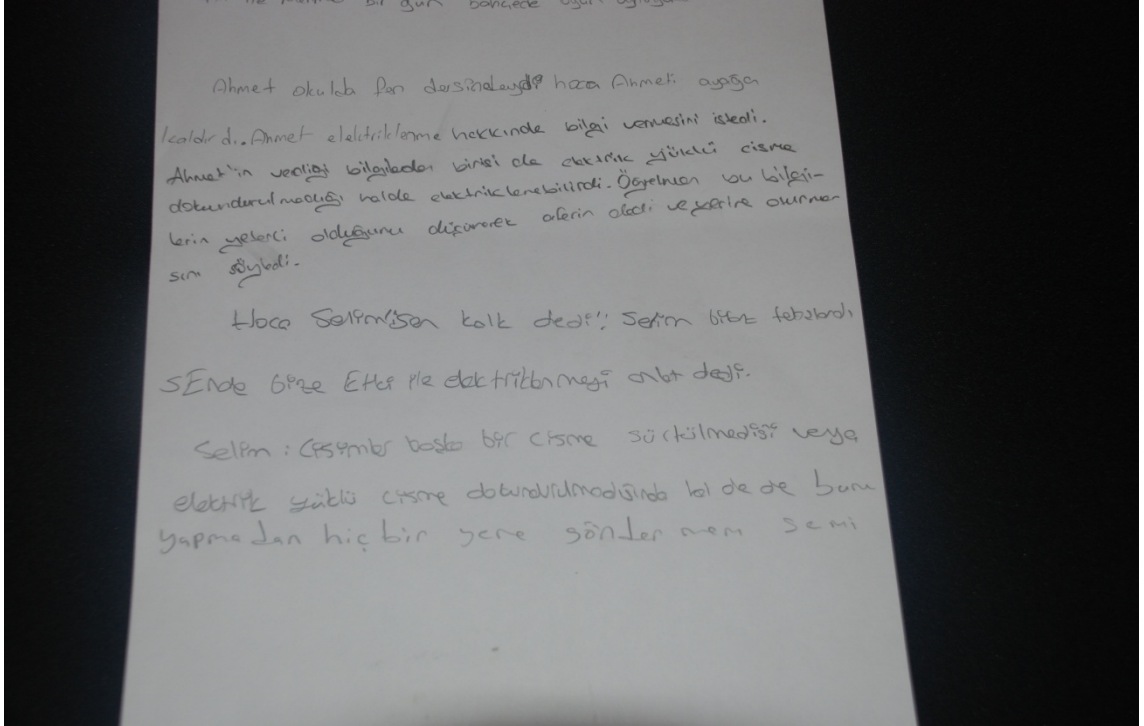 bir gün bahçede
Ahmet okulda fen dersindeydi hoca Ahmeti ayağa
kaldırdı.. Ahmet elektriklenme hakkında bilgi vermesini istedi.
Ahmet'in verdiği bilgilerden birisi de elektrik yüklü cisme
dokundurulmadığı halde elektriklenebilirdi. Öğretmen bu bilgi-
lerin yeterli olduğunu düşünerek aferin dedi ve yerine oturma-
sını söyledi.
Hoca Selim'sen kalk dedi'; Selim biraz
SENde bize Etki ile elektriklenmeyi anlat dedi.
Selim: Cisimler başka bir cisme sürtülmediği veya
elektrik yüklü cisme dokundurulmadığında de bunu
yapmadan hiç bir yere göndermem seni